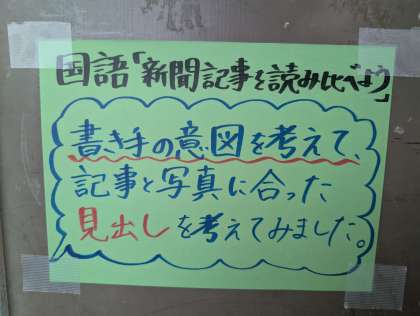 国語「新聞記事を読み比べよう」
書き手の意図を考えて、
記事と写真に合った
見出しを考えてみました。